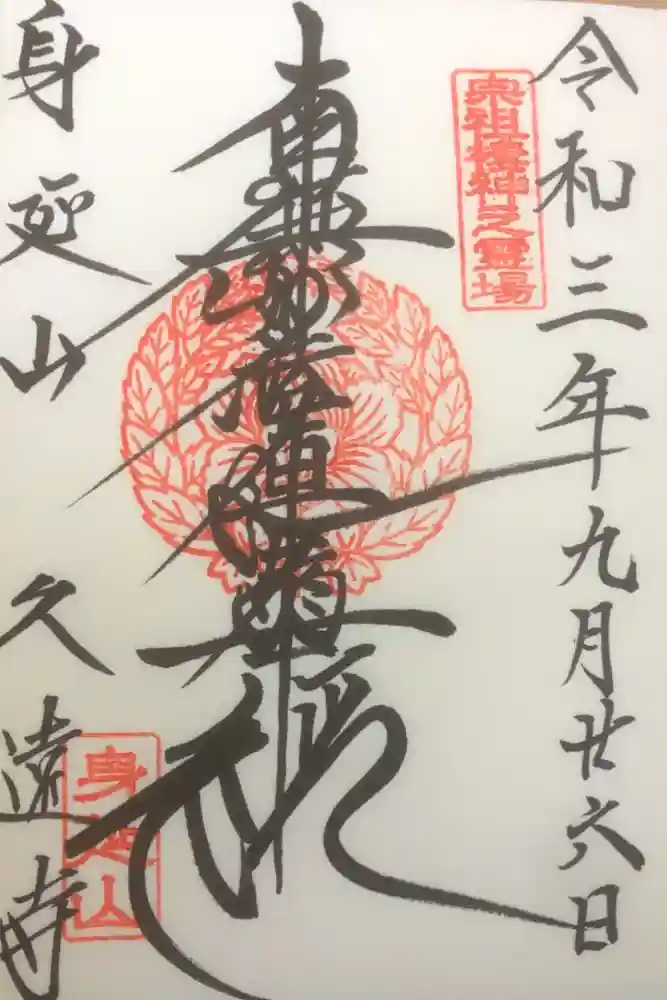 令和三年九月廿六日
宗祖棲神之霊場
南無妙法蓮華経
身延山
身延山 久遠寺